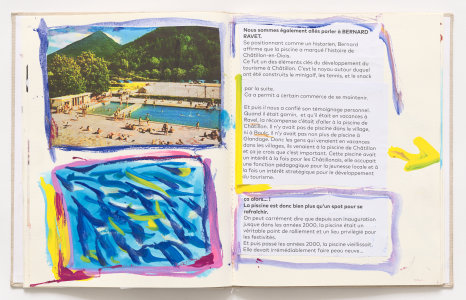 Nous sommes également allés parler à BERNARD
RAVET.
Se positionnant comme un historien, Bernard
affirme que la piscine a marqué l'histoire de
Châtillon-en-Diois.
Ce fut un des éléments clés du développement du
tourisme à Châtillon. C'est le noyau autour duquel
ont été construits le minigolf, les tennis, et le snack
par la suite.
Ca a permis a certain commerce de se maintenir.
Et puis il nous a confié son témoignage personnel.
Quand il était gamin, et qu'il était en vacances à
Ravel, la récompense c'était d'aller à la piscine de
Châtillon. Il n'y avait pas de piscine dans le village,
ni à Boulc. Il n'y avait pas non plus de piscine à
Glandage. Donc les gens qui venaient en vacances
dans les villages, ils venaient à la piscine de Châtillon
et ça je crois que c'est important. Cette piscine avait
un intérêt à la fois pour les Châtillonais, elle accueait
une fonction pédagogique pour la jeunesse locale et à
la fois un intérêt stratégique pour le développement
du tourisme.
ça alors... !
La piscine est donc bien plus qu'un spot pour se
rafraîchir.
On peut carrément dire que depuis son inauguration
jusque dans les années 2000, la piscine était un
véritable point de ralliement et un lieu privilégié pour
les festivités.
Et puis passé les années 2000, la piscine vieillissait,
Elle devait irrémédiablement faire peau neuve...